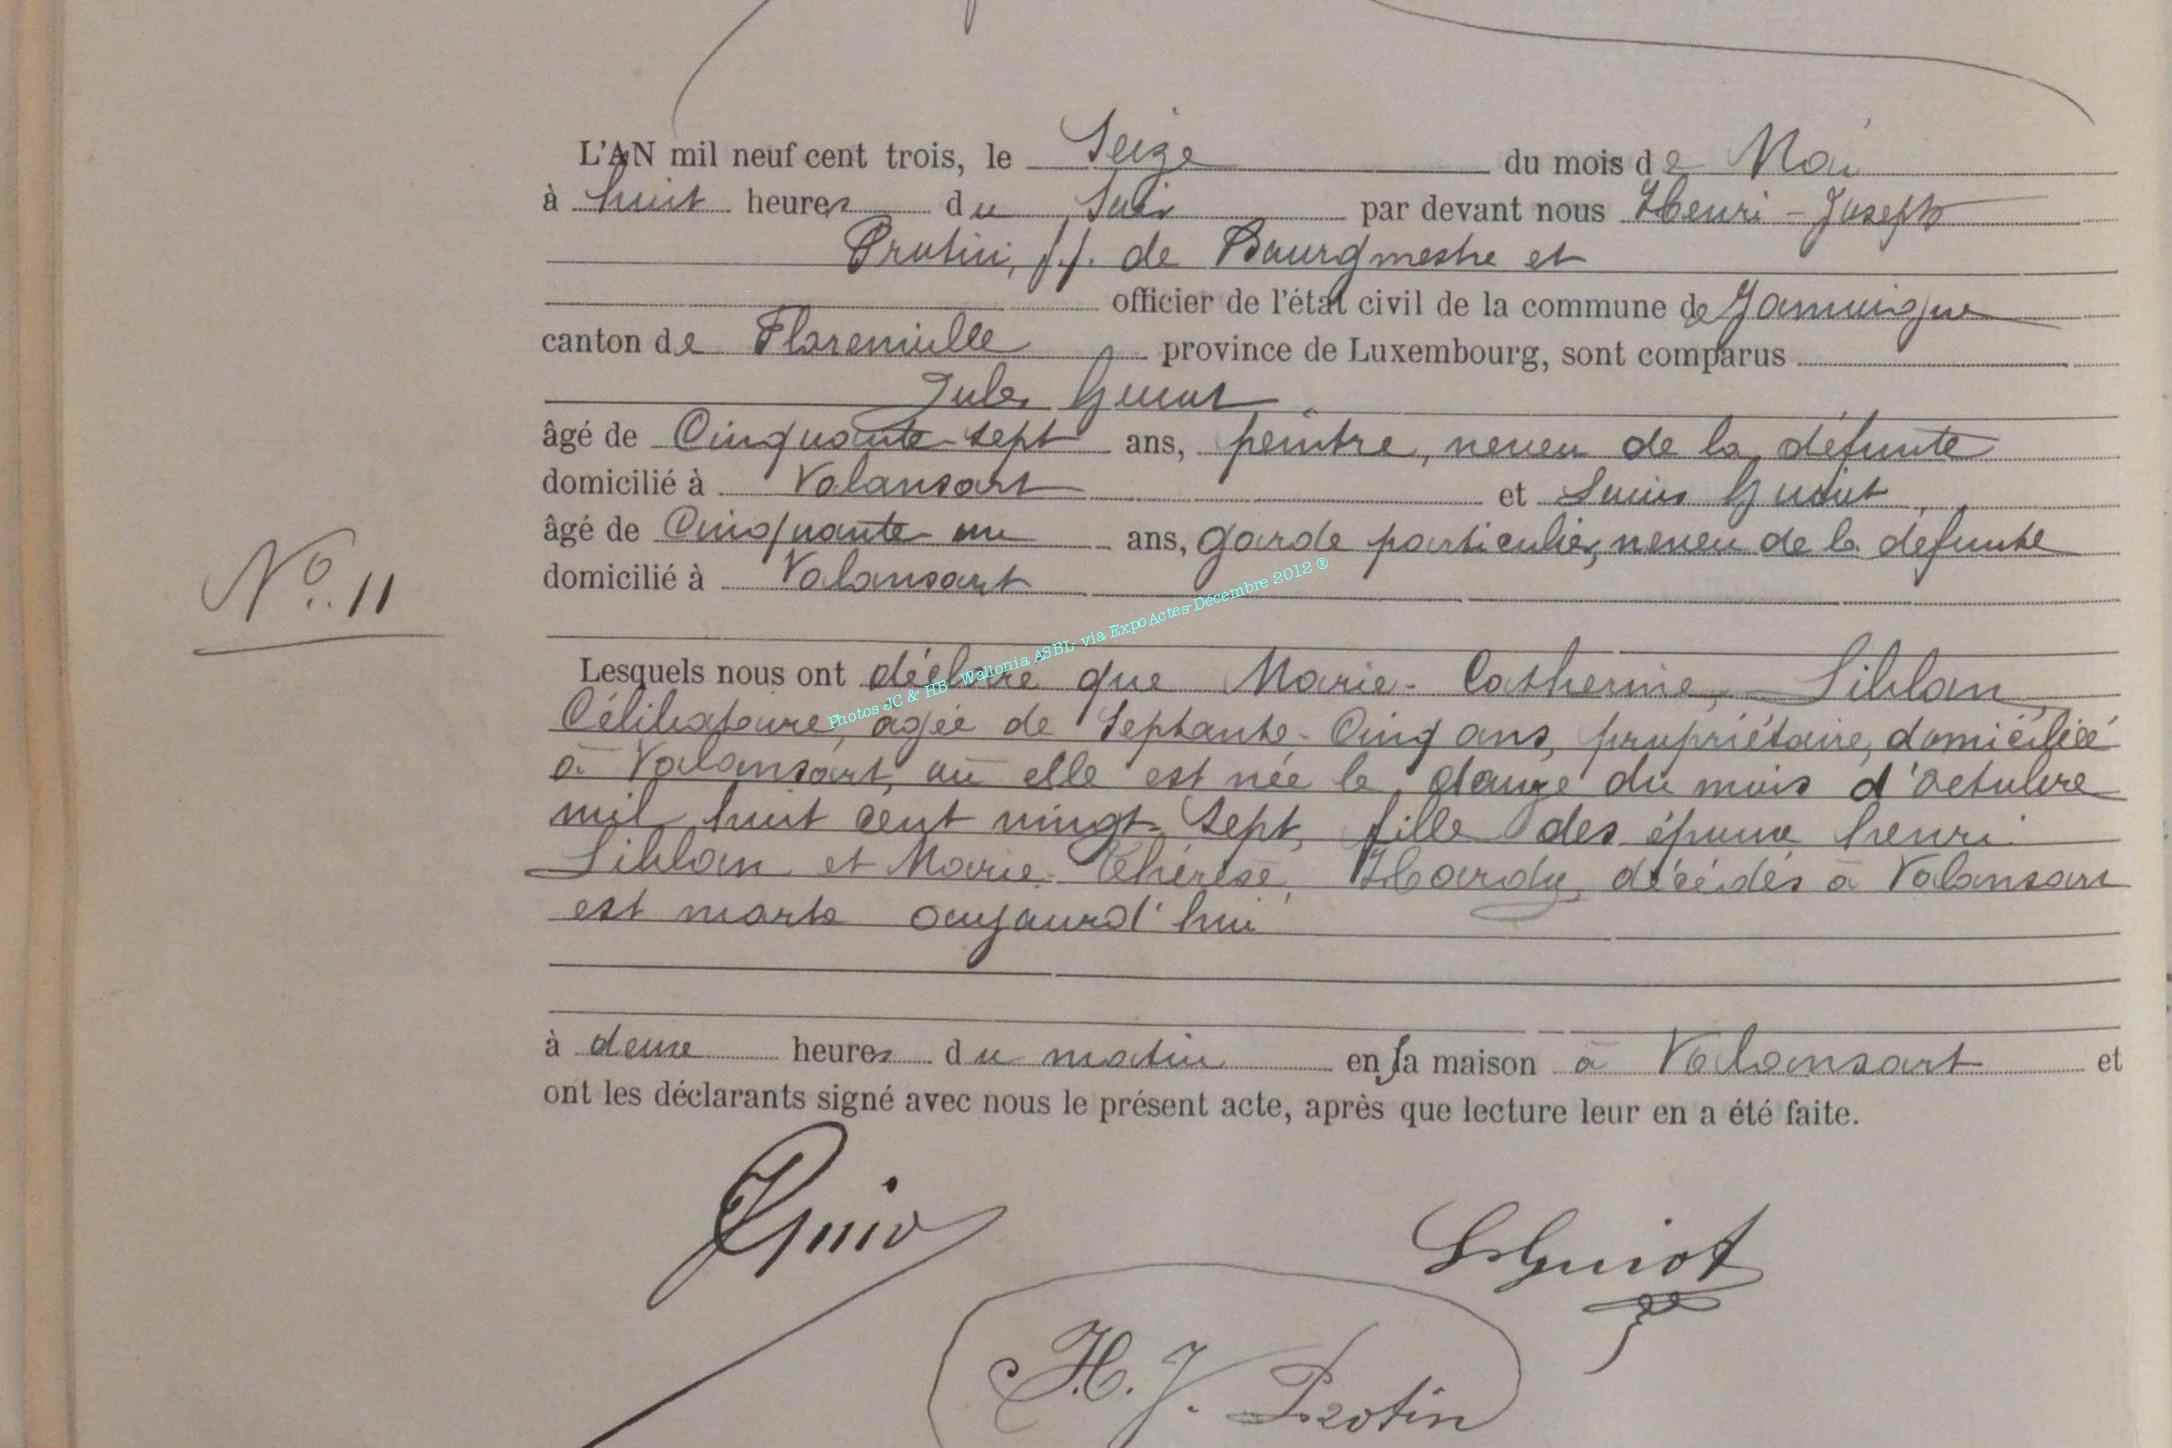 L'AN mil neuf cent trois, le Seize du mois de Mai
à huit heures du Soir par devant nous Henri - Joseph
Protin, f.f. de Bourgmestre et
officier de l'état civil de la commune de Jamoigne
canton de Florenville province de Luxembourg, sont comparus
Jules Guiot
âgé de Cinquante-sept ans, peintre, neveu de la défunte
domicilié à Valansart et Louis Guiot
âgé de Cinquante un ans, garde particulier, neveu de la défunte
domicilié à Valansart
N° 11
Lesquels nous ont déclaré que Marie - Catherine, Liblan
Célibataire, agée de Septante - Cinq ans, propriétaire, domiciliée
à Valansart, où elle est née le douze du mois d'octobre
mil huit cent vingt-sept, fille des époux henri
Liblan et Marie - Thérèse Hardy, décédés à Valansart
est morte aujourd'hui
à deux heures du matin en sa maison à Valansart et
ont les déclarants signé avec nous le présent acte, après que lecture leur en a été faite.
JGuio
LsGuiot
H. J. Protin
Photos JC & HB Wallonia ASBL via ExpoActes-Décembre 2012 ®